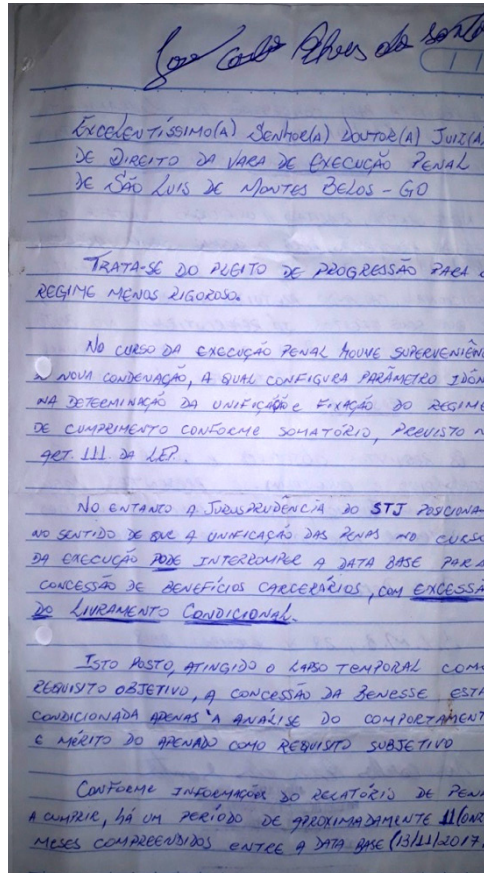 José Carlos Alves dos Santos
EXCELENTÍSSIMO(A) SENHOR(A) DOUTOR(A) JUIZ(A)
DE DIREITO DA VARA DE EXECUÇÃO PENAL
DE SÃO LUIS DE MONTES BELOS - GO
TRATA-SE DO PLEITO DE PROGRESSÃO PARA O
REGIME MENOS RIGOROSO.
NO CURSO DA EXECUÇÃO PENAL HOUVE SUPERVENIÊN
NOVA CONDENAÇÃO, A QUAL CONFIGURA PARÂMETRO IDÔN
NA DETERMINAÇÃO DA UNIFICAÇÃO E FIXAÇÃO DO REGIME
DE CUMPRIMENTO CONFORME SOMATÓRIO, PREVISTO N
ART. 111 DA LEP.
NO ENTANTO A JURISPRUDÊNCIA DO STJ POSICIONA-
NO SENTIDO DE QUE A UNIFICAÇÃO DAS PENAS NO CURSO
DA EXECUÇÃO PODE INTERROMPER A DATA BASE PARA
CONCESSÃO DE BENEFÍCIOS CARCERÁRIOS, COM EXCESSÃ
DO LIVRAMENTO CONDICIONAL.
ISTO POSTO, ATINGIDO O LAPSO TEMPORAL COMO
REQUISITO OBJETIVO, A CONCESSÃO DA BENESSE ESTÁ
CONDICIONADA APENAS A ANÁLISE DO COMPORTAMENT
E MÉRITO DO APENADO COMO REQUISITO SUBJETIVO
CONFORME INFORMAÇÕES DO RELATÓRIO DE PENA
A CUMPRIR, HÁ UM PERÍODO DE APROXIMADAMENTE 11(ONZ
MESES COMPREENDIDOS ENTRE A DATA BASE (13/11/2017)